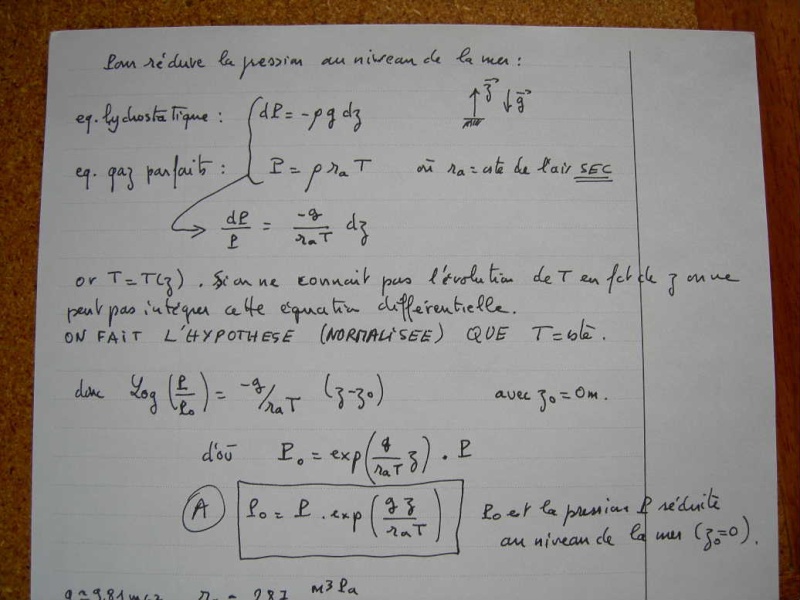 Pour réduire la pression au niveau de la mer :
eq. hydrostatique : dP = -ρ g dz
z g
eq. gaz parfaits : P = ρ ra T où ra = cste de l'air SEC
dP/P = -g/(ra T) dz
or T = T(z). Si on ne connait pas l'évolution de T en fct de z on ne
peut pas intégrer cette équation différentielle.
ON FAIT L'HYPOTHESE (NORMALISEE) QUE T = cste.
donc Log (P/P0) = -g/ra T (z-z0) avec z0 = 0m.
d'où P0 = exp(g/(ra T) z) . P
A P0 = P . exp (g z/(ra T)) P0 est la pression P réduite
au niveau de la mer (z0=0).
m3 Pa